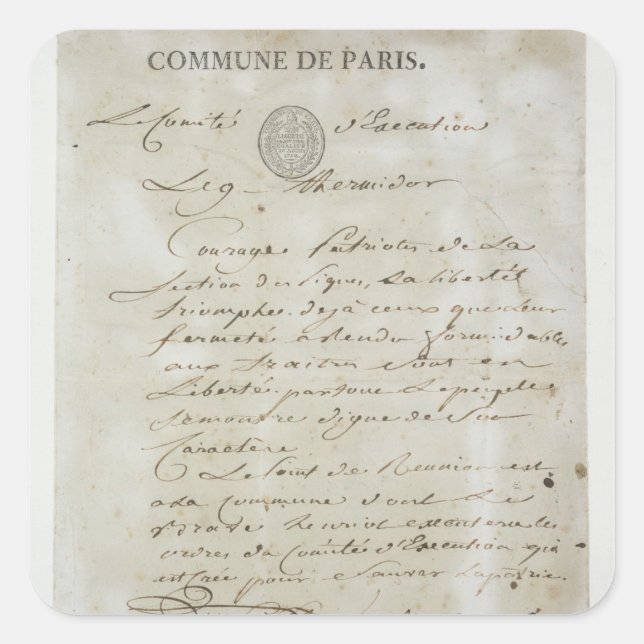 COMMUNE DE PARIS.
Le Comité d'Execution
Le 9 thermidor
Courage Patriotes de La
Section des Piques, La liberté
triomphe. deja ceux que Leur
fermeté a rendu formidables
aux traitres Sont en
Liberté. partout Le peuple
Se montre digne de Son
Caractère
Le Point de Reunion est
a La Commune dont Le
brave henriot executera les
ordres du Comité d'Execution qui
est Crée pour Sauver La patrie.